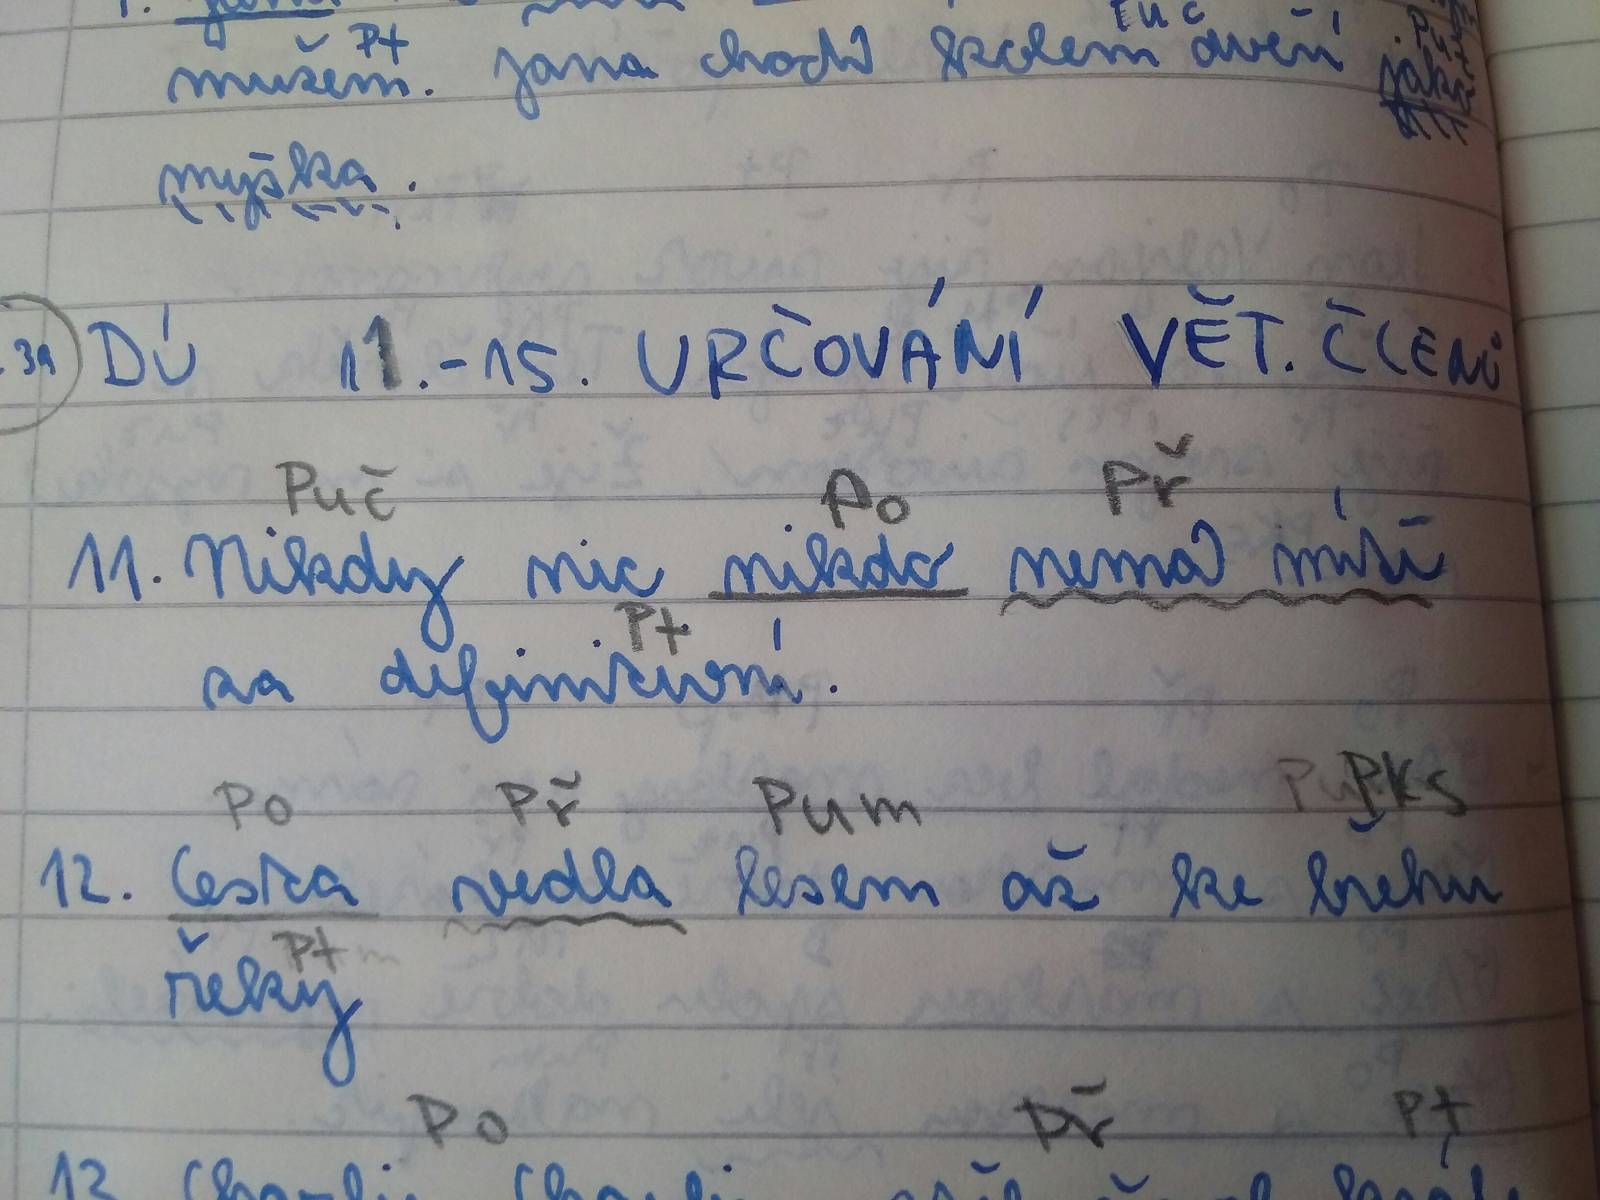 Pt
mužem. Jana chodí kolem dveří jako
myška.
.39 DÚ 11.-15. URČOVÁNÍ VĚT. ČLENŮ
Puč Po Př
11. Nikdy nic nikdo nemá míti
Pt
za definitivní.
Po Př Pum PKS
12. Cesta vedla lesem až ke břehu
Pt
řeky
Po Př Pt
13.